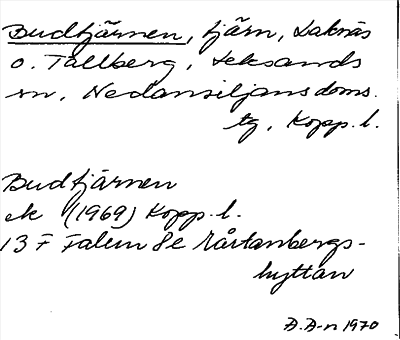 Budtjärnen, tjärn, Laknäs
o. Tällberg, Leksands
sn, Nedansiljans doms.
tg, Kopp. l.
Budtjärnen
ek (1969) Kopp. l.
13 F Falun 8e Rårtanbergs-
hyttan
A. A-n 1970